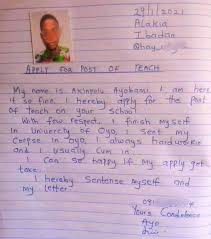 29/1/2021
Alakia
Ibadan
Qhoy
APPLY FOR POST OF TEACH
My name is Axinpelu Ayobami. I am here
it so fine. I hereby apply for the post
of teach on your school.
With few respect. I finish myself
in Univercty of Oyo, I sent my
Corpse in Oyo, I always hardworkie
and I usually cum in
I can so happy if my apply get
take.
I hereby Sentense myself and
my letter.
081
Yours Confidence
Ayo